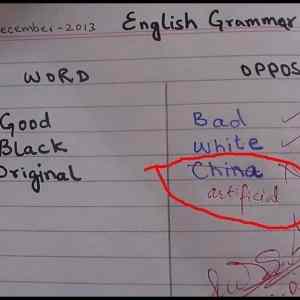 December-2013 English Grammar
WORD OPPOS
Good Bad
Black White
Original China
artificial